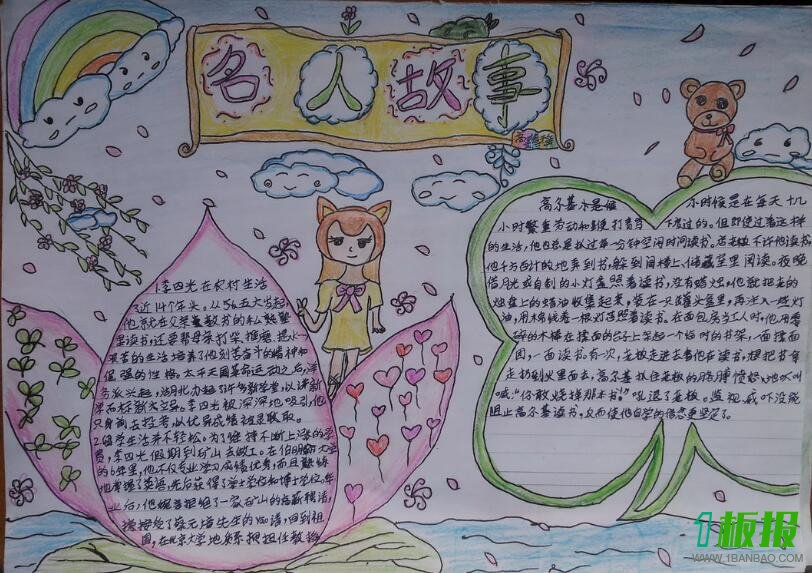 名人故事
李四光在农村生活
了近14个年头。从5、6五六岁起,
他就在父亲教书的私塾
里读书,还要帮母亲打柴、推磨、提水
艰苦的生活培养了他刻苦奋斗的精神和
倔强的性格。太平天国革命运动之后,洋
务派兴起,湖北办起了许多新学堂,以讲新
学
李四光被深深地吸引,他
只身前去投考,以优异成绩被录取。
2.留学生活并不轻松。为了维持不断上涨的学
费,李四光假期到矿山去做工。在伯明翰大学
的6年里,他不仅专业学习成绩优秀,而且熟练
地掌握了英语,先后获得了学士学位和博士学位。毕
业后,他婉言拒绝了一家矿山的高薪聘请,
接受了蔡元培先生的邀请,回到祖
国,在北京大学地质系担任教授
高尔基小时候 小时候是在每天十几
小时繁重劳动和经受打骂下度过的。但即使过着这样
的生活,他也总是抓过每一分钟空闲时间读书。老板不许他读书
他千方百计的地弄到书,躲到阁楼上、储藏室里阅读。夜晚
借月光或自制的小灯盏照着读书。没有蜡烛,他就把老的
烛盘上的蜡油收集起来,装在一只罐头盒里,再注入一些灯
油,用棉线卷一根灯芯照着读书。在面包房当工人时,他用零
碎的木棒在揉面的台子上架起一个临时的书架,一面揉面
团,一面读书有一次,老板走进去看他在读书,想把书拿
走扔到火里面去,高尔基抓住老板的胳膊愤怒地吼叫
喊:“你敢烧掉那本书!”吼退了老板。监视、威吓没能
阻止高尔基读书,反而使他自学的信念更坚定了。
1板报
WWW.1BANBAO.COM